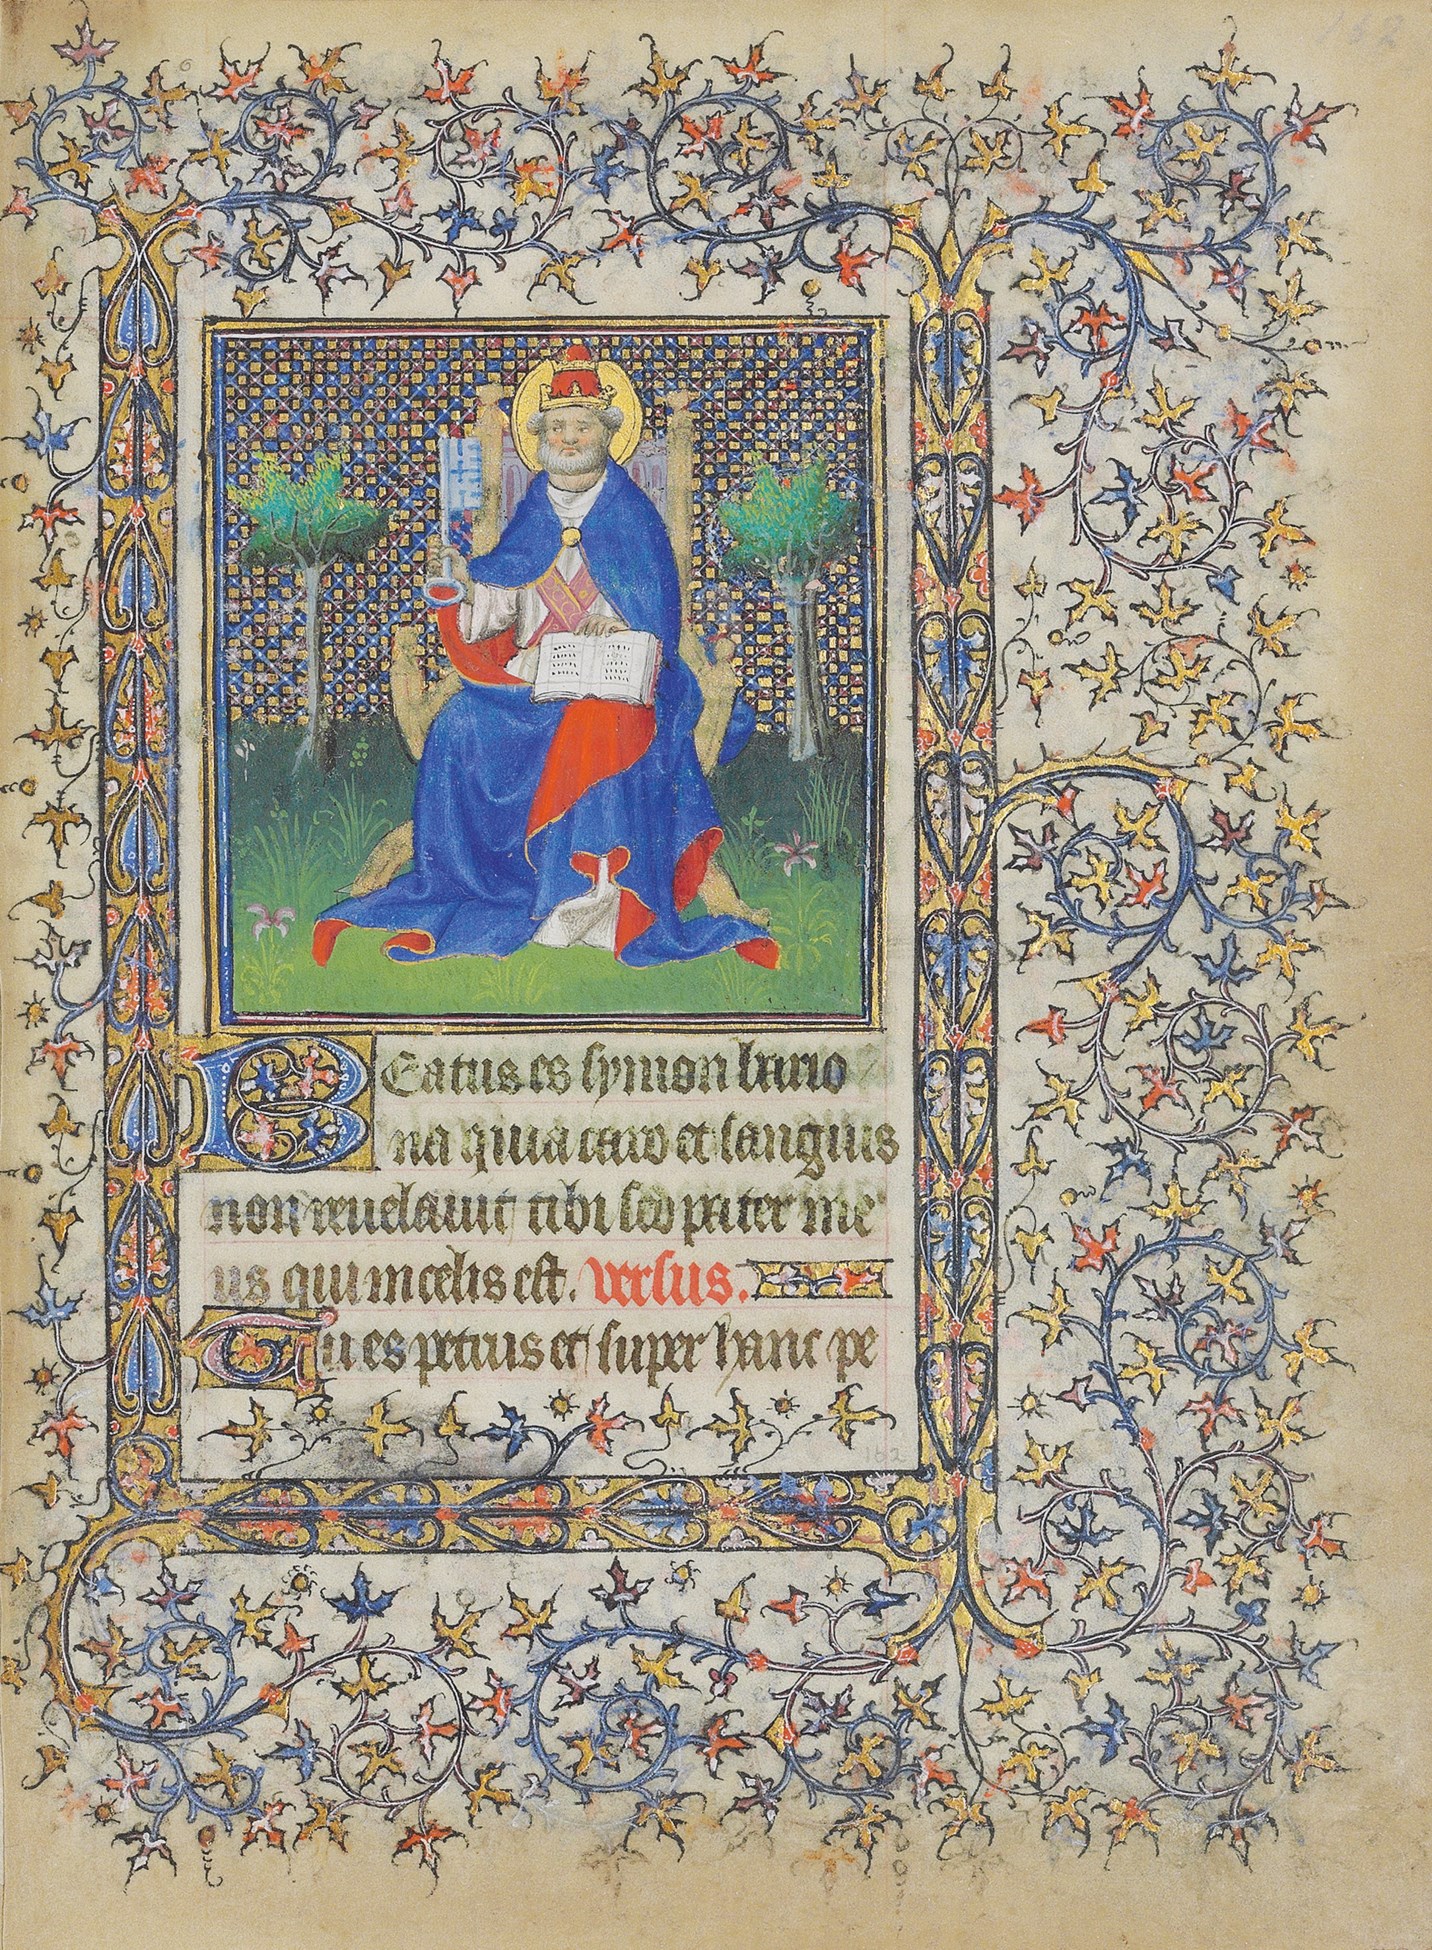 Beatus es symon bario
na quia caro et sanguis
non reuelauit tibi sed pater me
us qui in celis est. versus.
Tu es petrus et super hanc pe
162